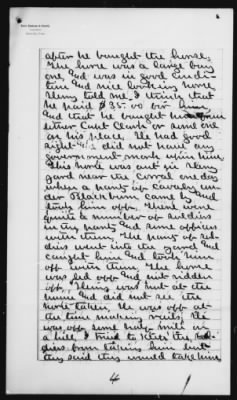 after he bought the horse.
The horse was a large bay
one, and was in good condi-
tion and nice looking horse
Henry told me, I think that
he paid $135.00 for him
and that he bought him from
either Capt Clark or some one
on his place. He had good
sight and did not have any
government mark upon him.
This horse was out in Henry
yard near the Corral one day
when a party of cavalry un-
der Blackburn came by and
took him off. There were
quite a number of soldiers
in the party and some officers
with them. The party of sol-
diers went into the yard and
caught him and took him
off with them. The horse
was led off and not ridden
off. Henry was not at the
home and did not see the
horse taken. He was off at
the time making rails. He
was off some half mile on
a hill. I tried to keep the sol-
diers from taking him but
they said they would take him